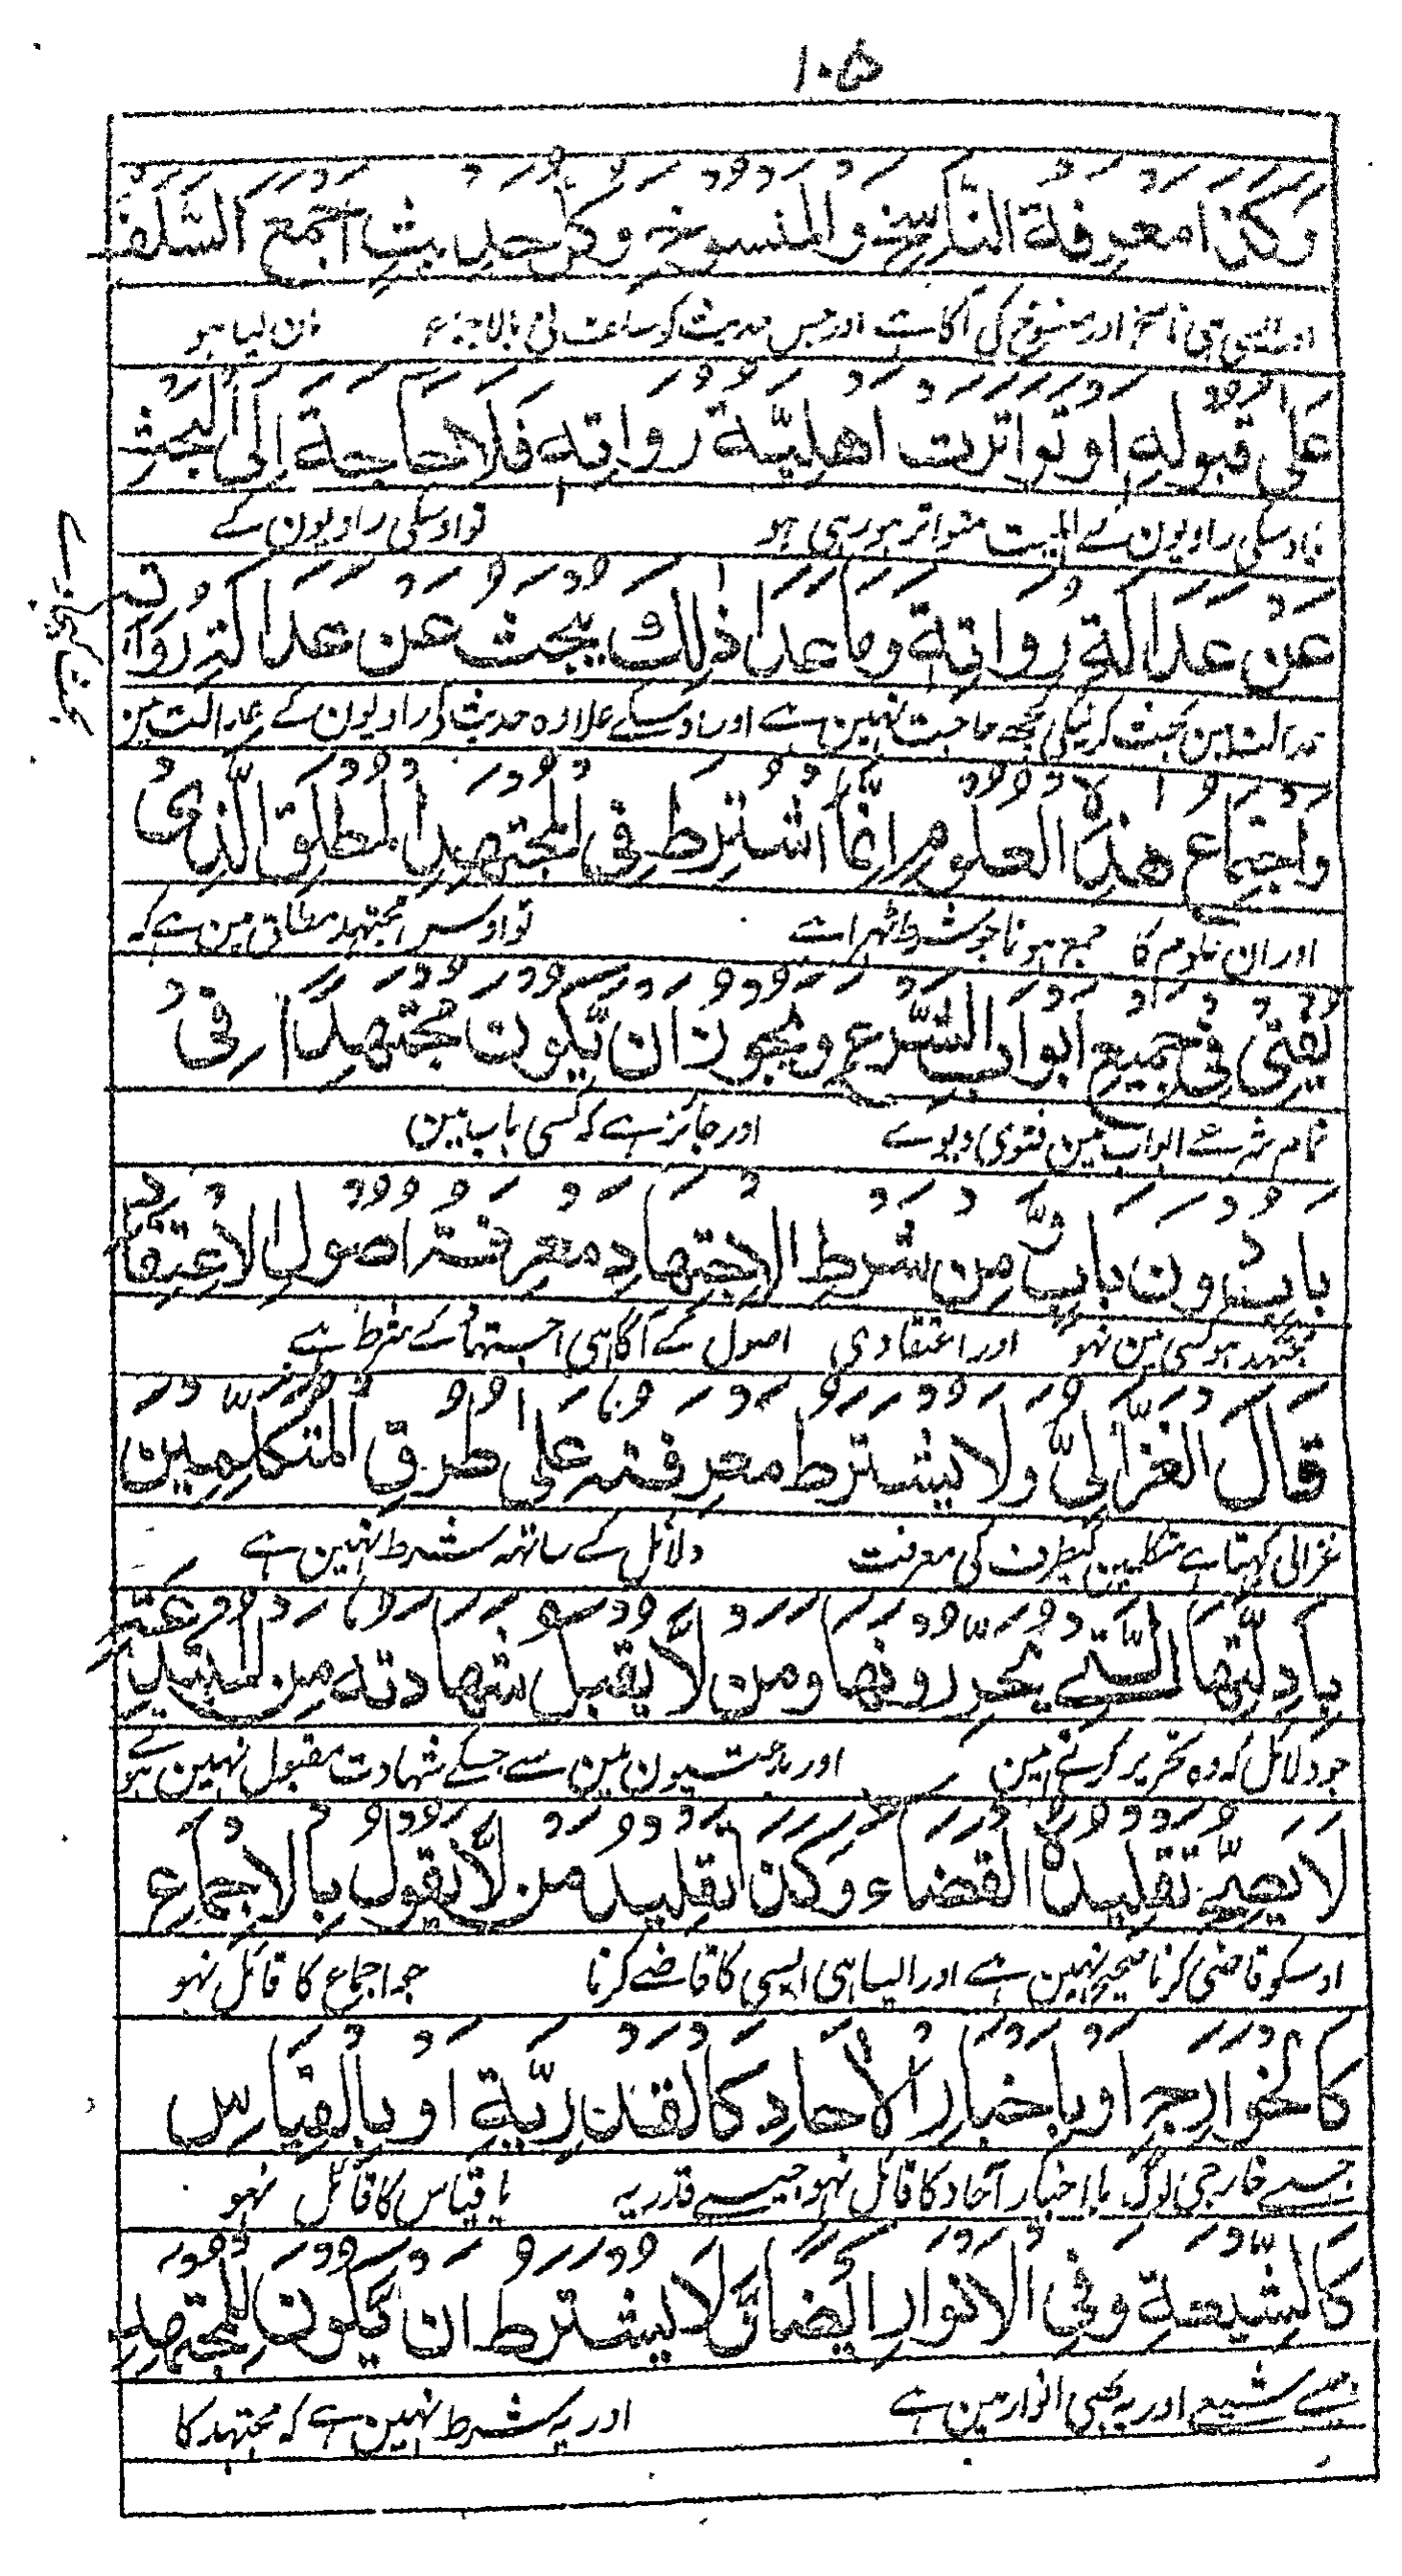 ١٠٥
وَكَذَا مَعْرِفَةُ النَّاسِخِ وَالْمَنْسُوخِ وَكُلُّ حَدِيثٍ اَجْمَعَ السَّلَفُ
اور ایسی ہی ناسخ اور منسوخ کی آگاہی اور جس حدیث کو سلف نی بالاجماع مان لیا ہو
عَلَى قَبُولِهِ اَوْ تَوَاتَرَتْ اَهْلِيَّةُ رُوَاتِهِ فَلَا حَاجَةَ اِلَى الْبَحْثِ
یا اوسکی راویون کے اہلیت متواتر ہو رہی ہو تو اوسکی راویون کے
عَنْ عَدَالَةِ رُوَاتِهِ وَمَا عَدَا ذٰلِكَ يُبْحَثُ عَنْ عَدَالَةِ رُوَاتِهِ
عدالت مین بحث کرنیکی کچھ حاجت نہین ہے اور اوسکے علاوہ حدیث کی راویون کے عدالت مین
وَاجْتِمَاعُ هٰذِهِ الْعُلُومِ اِنَّمَا اشْتُرِطَ فِي الْمُجْتَهِدِ الْمُطْلَقِ الَّذِي
اور ان علوم کا جمع ہونا جو شرط ٹہرا ہے تو اوس مجتہد مطلق مین ہے کہ
يُفْتِي فِي جَمِيعِ اَبْوَابِ الشَّرْعِ وَيَجُوزُ اَنْ يَّكُونَ مُجْتَهِدًا فِي
تمام شرع کے ابواب مین فتوی دیوے اور جائز ہے کہ کسی باب مین
بَابٍ دُونَ بَابٍ وَّمِنْ شَرْطِ الْاِجْتِهَادِ مَعْرِفَةُ اُصُولِ الْاِعْتِقَادِ
مجتہد ہو کسی مین نہو اور اعتقادی اصول کے آگاہی اجتہاد کے شرط ہے
قَالَ الْغَزَّالِيُّ وَلَا يُشْتَرَطُ مَعْرِفَتُهُ عَلَى طُرُقِ الْمُتَكَلِّمِينَ
غزالی کہتا ہے متکلمین کیطرف کی معرفت دلائل کے ساتھ شرط نہین ہے
بِاَدِلَّتِهَا الَّتِي يُحَرِّرُونَهَا وَمَنْ لَّا يُقْبَلُ شَهَادَتُهُ مِنَ الْمُبْتَدِعَةِ
جو دلائل کہ وہ تحریر کرتے ہین اور بدعتیون مین سے جسکے شہادت مقبول نہین ہے
لَا يَصِحُّ تَقْلِيدُهُ الْقَضَاءَ وَكَذَا تَقْلِيدُ مَنْ لَّا يَقُولُ بِالْاِجْمَاعِ
اوسکو قاضی کرنا صحیح نہین ہے اور ایسا ہی ایسی کا قاضے کرنا جو اجماع کا قائل نہو
كَالْخَوَارِجِ اَوْ بِاَخْبَارِ الْاٰحَادِ كَالْقَدَرِيَّةِ اَوْ بِالْقِيَاسِ
جیسے خارجی لوگ یا اخبار آحاد کا قائل نہو جیسے قدریہ یا قیاس کا قائل نہو
كَالشِّيعَةِ وَفِي الْاَنْوَارِ اَيْضًا وَّلَا يُشْتَرَطُ اَنْ يَّكُونَ لِلْمُجْتَهِدِ
جیسے شیعے اور یہ بھی انوار مین ہے اور یہ شرط نہین ہے کہ مجتہد کا